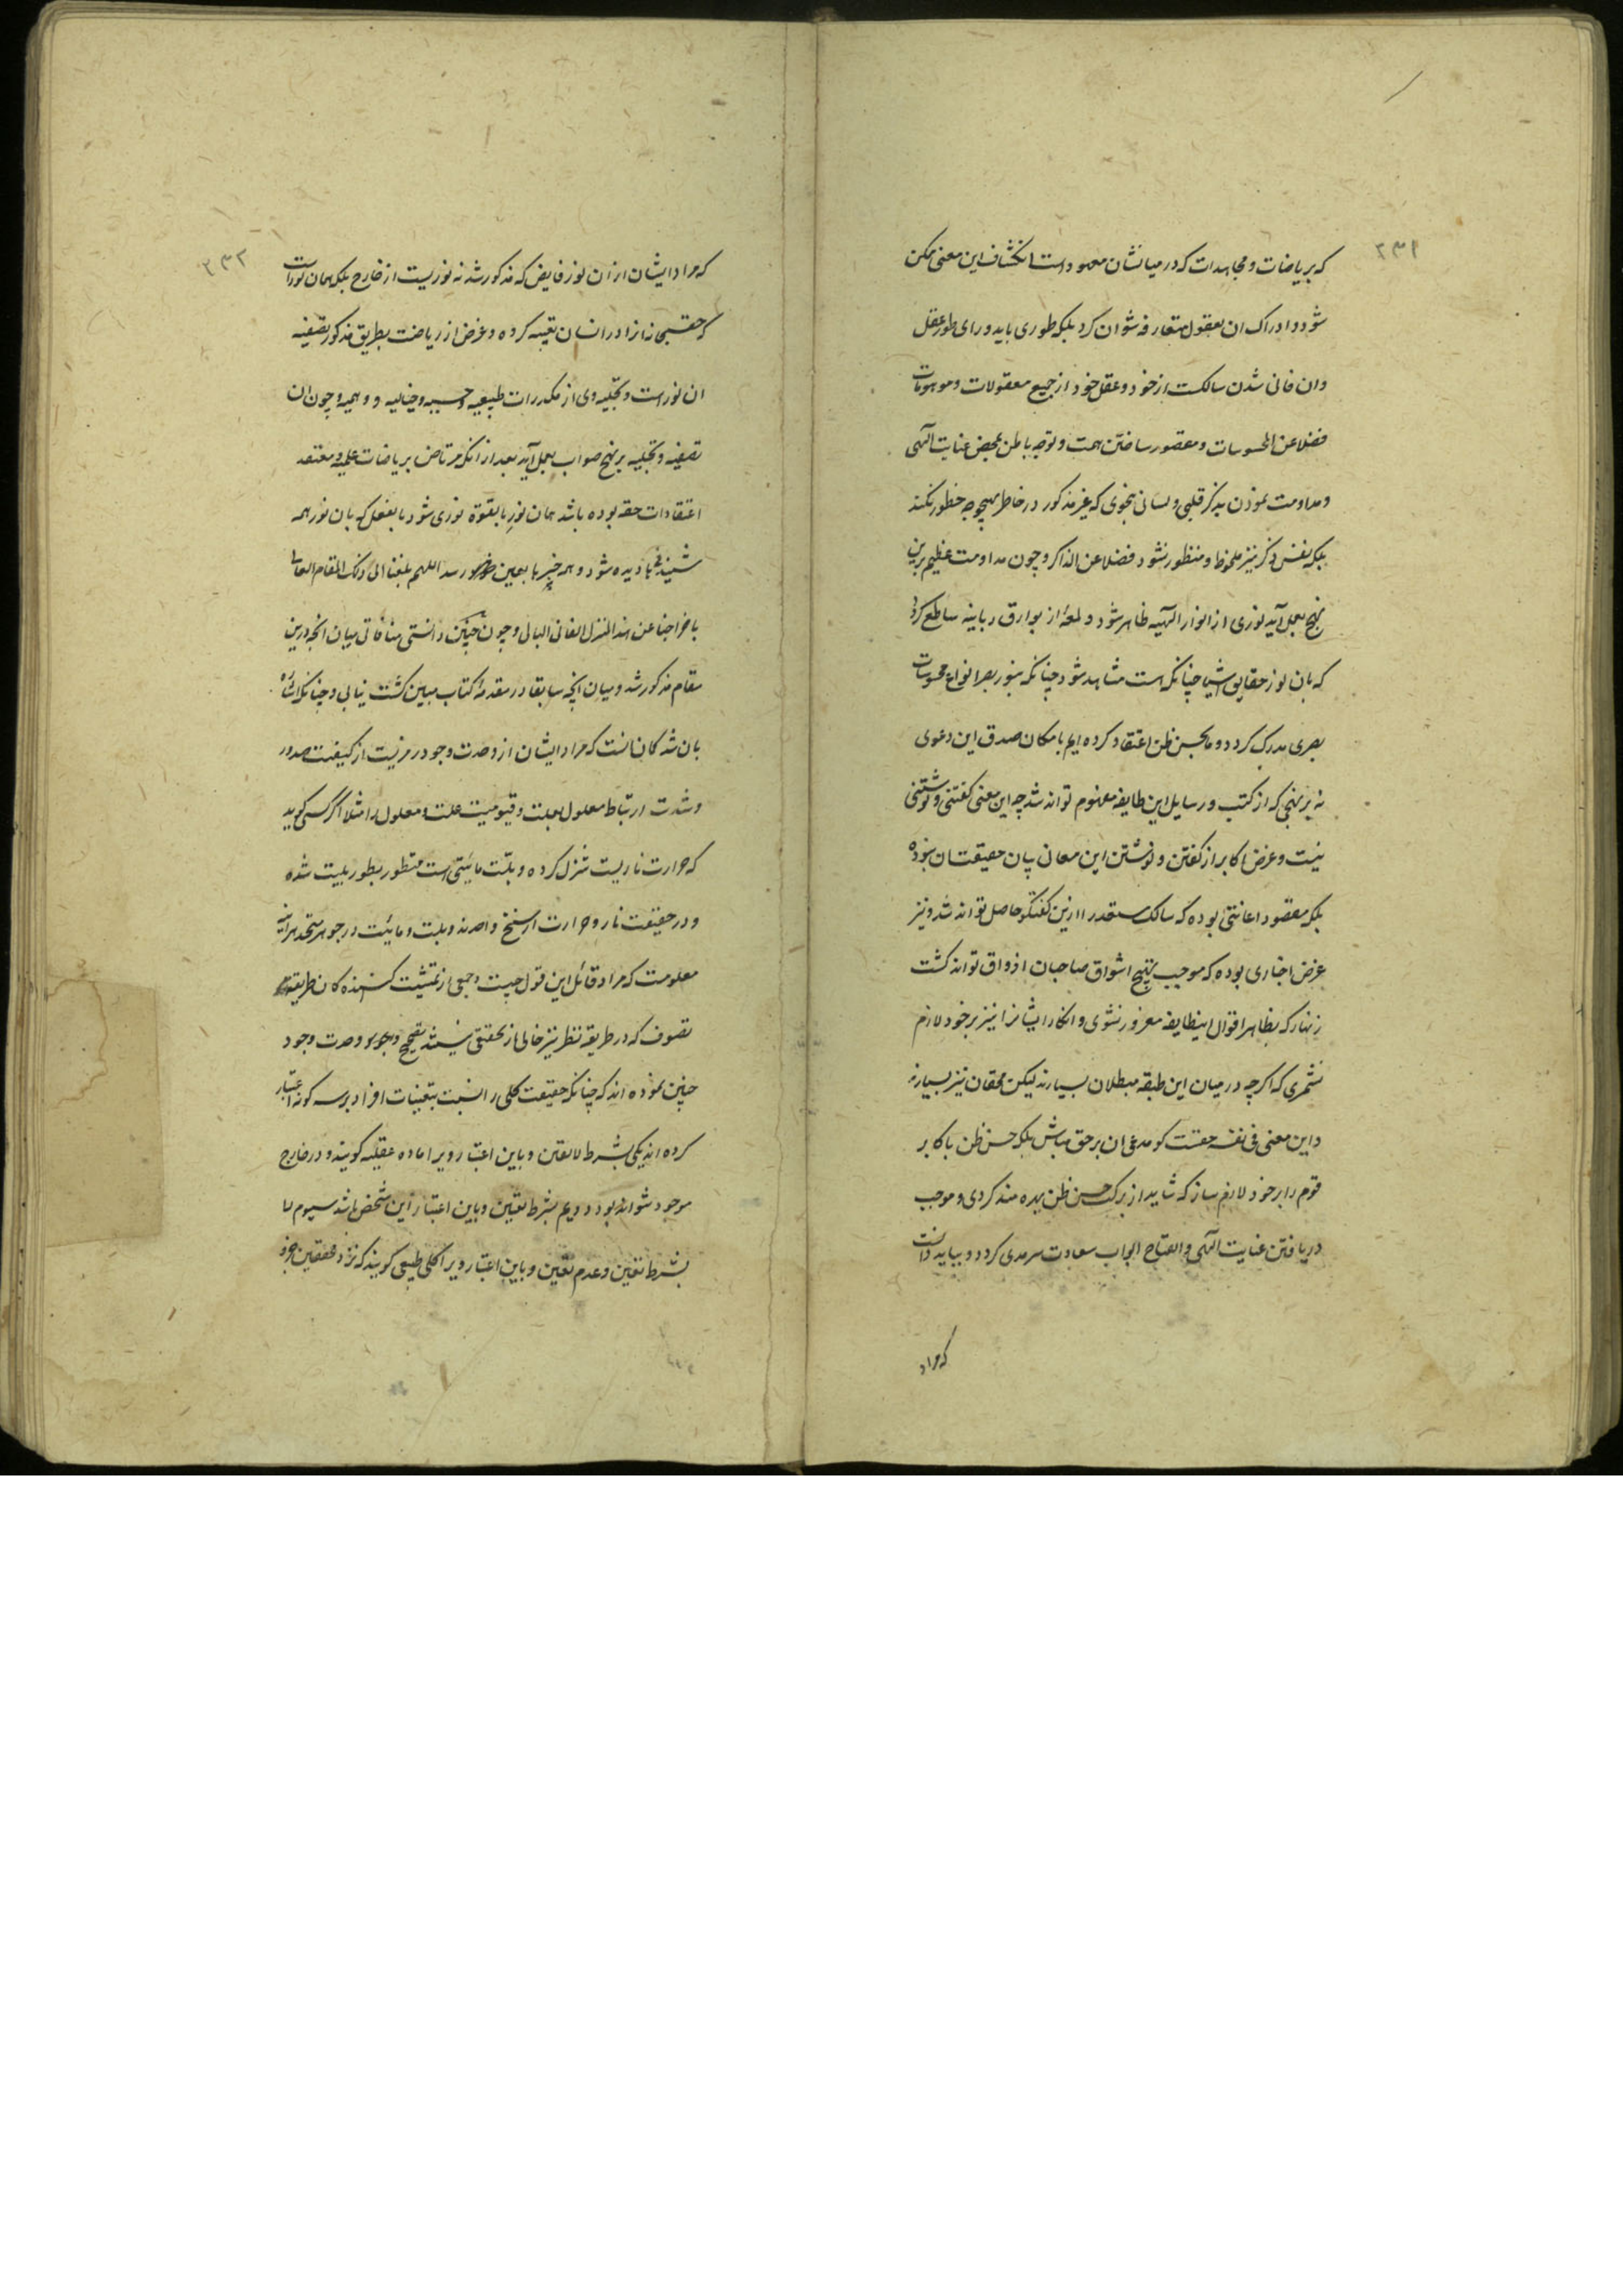 ۳۳۱
که بریاضات و مجاهدات که در میانشان معمود است انکشاف این معنی ممکن
شود و ادراک ان بعقول متعارفه نتوان کرد بلکه طوری باید ورای طور عقل
وان فانی شدن سالکست از خود و عقل خود از جمیع معقولات و موهومات
فضلا عن المحسوسات و مقصور ساختن همت و توجه باطن بمحض عنایت الهی
و مداومت نمودن بذکر قلبی و لسانی بنحوی که غیر مذکور در خاطر بهیچوجه خطور نکند
بلکه نفس ذکر نیز ملحوظ و منظور نشود فضلا عن الذاکر و چون مداومت عظیم برین
نهج بعمل آید نوری از انوار الهیه ظاهر شود و لمعهٔ از بوارق ربانیه ساطع کردد
که بان نور حقایق اشیا چنانکه هست مشاهد شود چنانکه بنور بصر انواع محسوسات
بصری مدرک کردد و ما بحسن ظن اعتقاد کرده ایم بامکان صدق این دعوی
نه بر نهجی که از کتب و رسایل این طایفه مفهوم تواند شد چه این معنی کفتنی و نوشتنی
نیست و غرض اکابر از کفتن و نوشتن این معانی بیان حقیقتشان نبوده
بلکه مقصود اعانتی بوده که سالک مستعد را ازین کفتکو حاصل تواند شد و نیز
غرض اخباری بوده که موجب تهییج اشواق صاحبان اذواق تواند کشت
زنهار که بظاهر اقوال اینطایفه مغرور نشوی و انکار ایشانرا نیز بر خود لازم
نشمری که اکرچه در میان این طبقه مبطلان بسیارند لیکن محقان نیز بسیارند
و این معنی فی نفسه حقست کو مدعی ان بر حق مباش بلکه حسن ظن باکابر
قوم را بر خود لازم ساز که شاید از برکت حسن ظن بهره مند کردی و موجب
دریافتن عنایت الهی و انفتاح ابواب سعادت سرمدی کردد و بباید دانست
که مراد
۳۳۲
که مراد ایشان از ان نور فایض که مذکور شد نه نوریست از خارج بلکه همان نوراست
که حقسبحانه انرا در انسان تعبیه کرده و غرض از ریاضت بطریق مذکور تصفیه
ان نوراست و تجلیه وی از مکدرات طبیعیه و حسیه و خیالیه و وهمیه و چون ان
تصفیه و تجلیه بر نهج صواب بعمل آید بعد از انکه مرتاض بریاضات علمیه و معتقد
اعتقادات حقه بوده باشد همان نور بالقوه نوری شود بالفعل که بان نور همه
شنیدنیها دیده شود و همه خبرها بعین حضور رسد اللهم بلغنا الی ذلک المقام العالی
باخراجنا عن هذا المنزل الفانی البالی و چون چنین دانستی منافاتی میان انچه درین
مقام مذکور شد و میان انچه سابقا در مقدمهٔ کتاب مبین کشت نیابی و چنانکه اشاره
بان شد کان انست که مراد ایشان از وحدت وجود رمزیست از کیفیت صدور
و شدت ارتباط معلول بعلت و قیومیت علت معلول را مثلا اکر کسی کوید
که حرارت ناریست تنزل کرده و بلت مائیتی است متطور بطور بلیت شده
و در حقیقت نار و حرارت از سنخ واحدند و بلت و مائیت در جوهر متحد هراینه
معلومست که مراد قائل این قول چیست و جمعی از تمشیت کنندهکان طریقه
تصوف که در طریقه نظر نیز خالی از تحقیق نیستند تصحیح وحدت وجود
چنین نموده اند که چنانکه حقیقت کلی را نسبت بتعینات افراد بر سه کونه اعتبار
کرده اند یکی بشرط لا تعین و باین اعتبار ویرا ماده عقلیه کویند و در خارج
موجود نتواند بود دویم بشرط تعین و باین اعتبار این شخص باشد سیوم لا
بشرط تعین و عدم تعین و باین اعتبار ویرا کلی طبیعی کویند که نزد محققین جزو